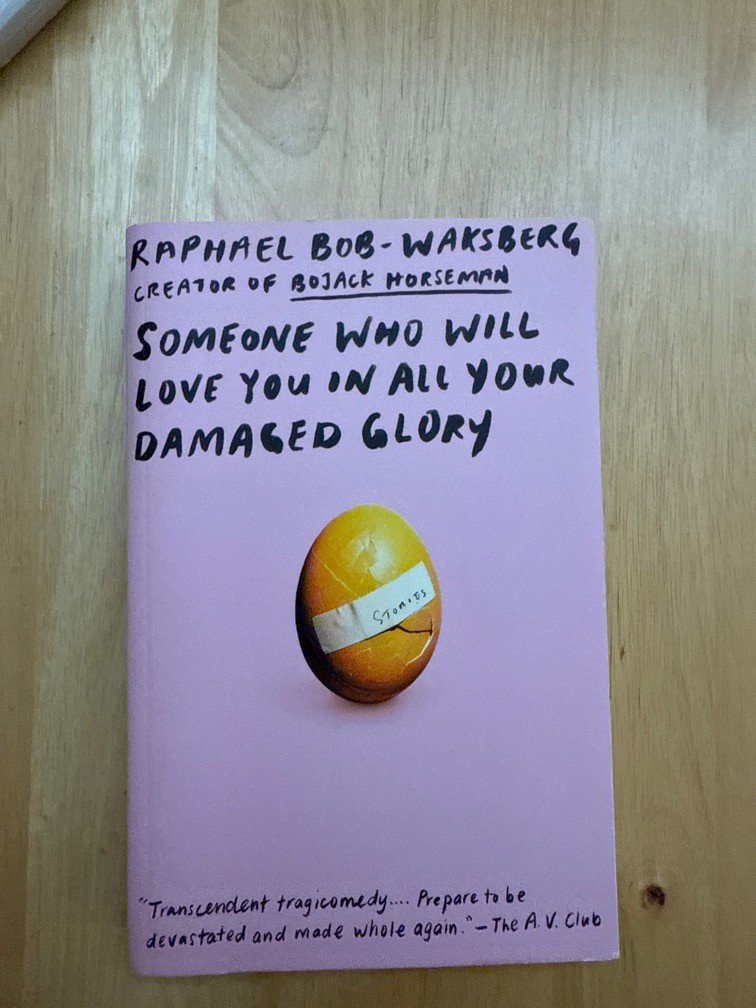 RAPHAEL BOB-WAKSBERG
CREATOR OF BOJACK HORSEMAN
SOMEONE WHO WILL
LOVE YOU IN ALL YOUR
DAMAGED GLORY
STORIES
"Transcendent tragicomedy.... Prepare to be
devastated and made whole again."—The A.V. Club